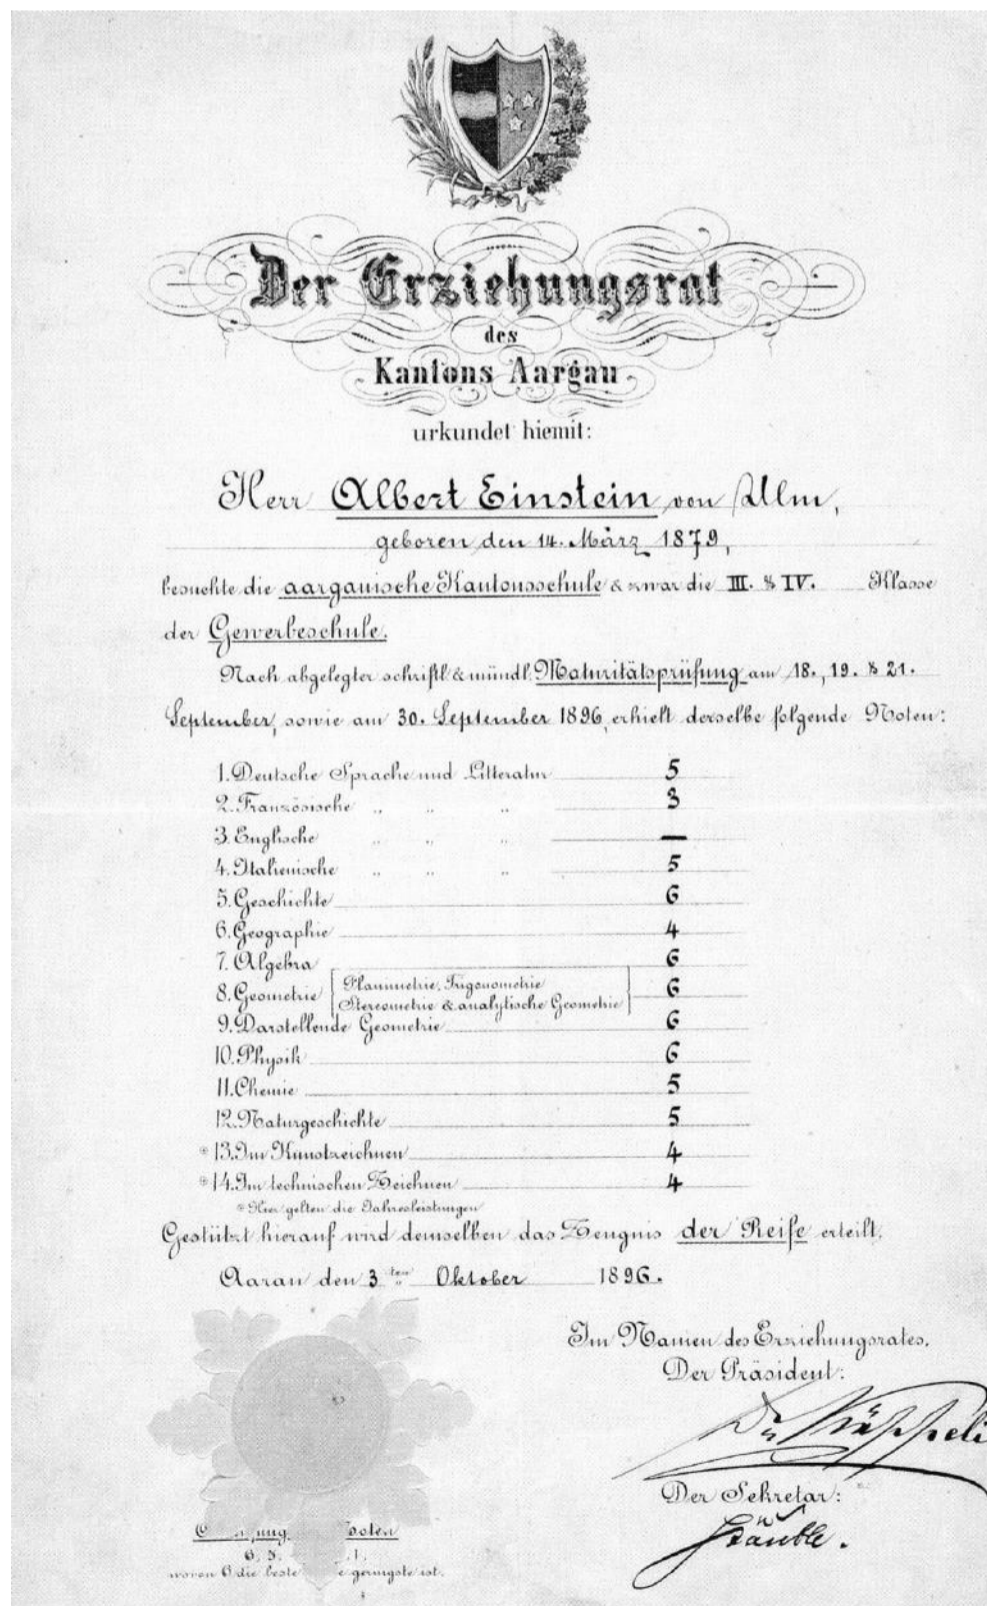 Der Erziehungsrat
des
Kantons Aargau
urkundet hiemit:
Herr Albert Einstein von Ulm,
geboren den 14. März 1879,
besuchte die aargauische Kantonsschule & zwar die III. & IV. Klasse
der Gewerbeschule.
Nach abgelegter schriftl. & mündl. Maturitätsprüfung am 18., 19. & 21.
September, sowie am 30. September 1896, erhielt derselbe folgende Noten:
1. Deutsche Sprache und Litteratur 5
2. Französische „ „ „ 3
3. Englische „ „ „ —
4. Italienische „ „ „ 5
5. Geschichte 6
6. Geographie 4
7. Algebra 6
8. Geometrie [Planimetrie, Trigonometrie 6
Stereometrie & analytische Geometrie]
9. Darstellende Geometrie 6
10. Physik 6
11. Chemie 5
12. Naturgeschichte 5
* 13. Im Kunstzeichnen 4
* 14. Im technischen Zeichnen 4
* Hier gelten die Jahresleistungen
Gestützt hierauf wird demselben das Zeugnis der Reife erteilt.
Aarau den 3ten Oktober 1896.
Im Namen des Erziehungsrates,
Der Präsident:
Dr. Käppeli
Der Sekretär:
Stäuble.
Noten
6, 5, 1,
wovon 6 die beste geringste ist.